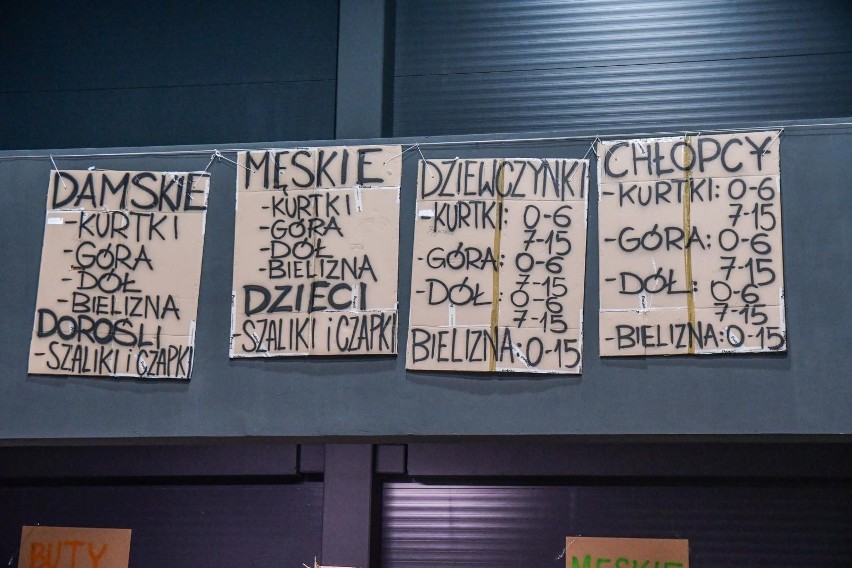 DAMSKIE
-KURTKI
-GÓRA
-DÓŁ
-BIELIZNA
DOROŚLI
-SZALIKI i CZAPKI
MĘSKIE
-KURTKI
-GÓRA
-DÓŁ
-BIELIZNA
DZIECI
-SZALIKI i CZAPKI
DZIEWCZYNKI
-KURTKI: 0-6
7-15
-GÓRA: 0-6
7-15
-DÓŁ: 0-6
7-15
BIELIZNA: 0-15
CHŁOPCY
-KURTKI: 0-6
7-15
-GÓRA: 0-6
7-15
-DÓŁ: 0-6
7-15
-BIELIZNA: 0-15
BUTY
MĘSKIE